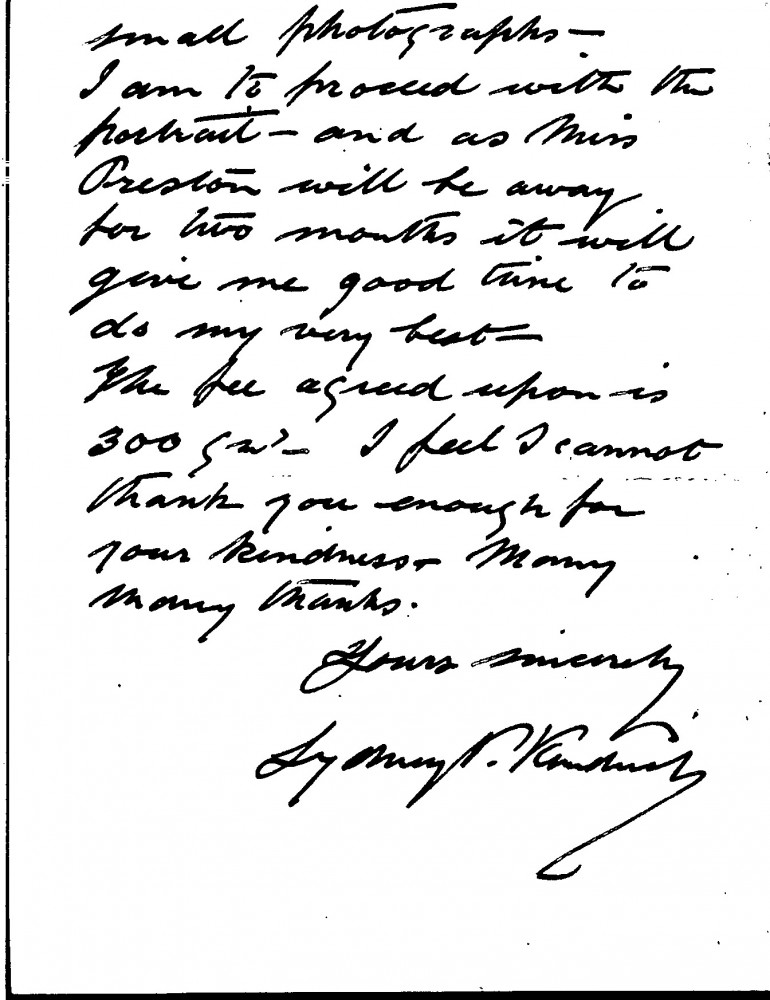 small photographs –
I am to proceed with the
portrait – and as Miss
Preston will be away
for two months it will
give me good time to
do my very best –
The fee agreed upon is
300 gns – I feel I cannot
thank you enough for
your kindness – Many
Many thanks.
Yours sincerely
Sydney P. Kendrick